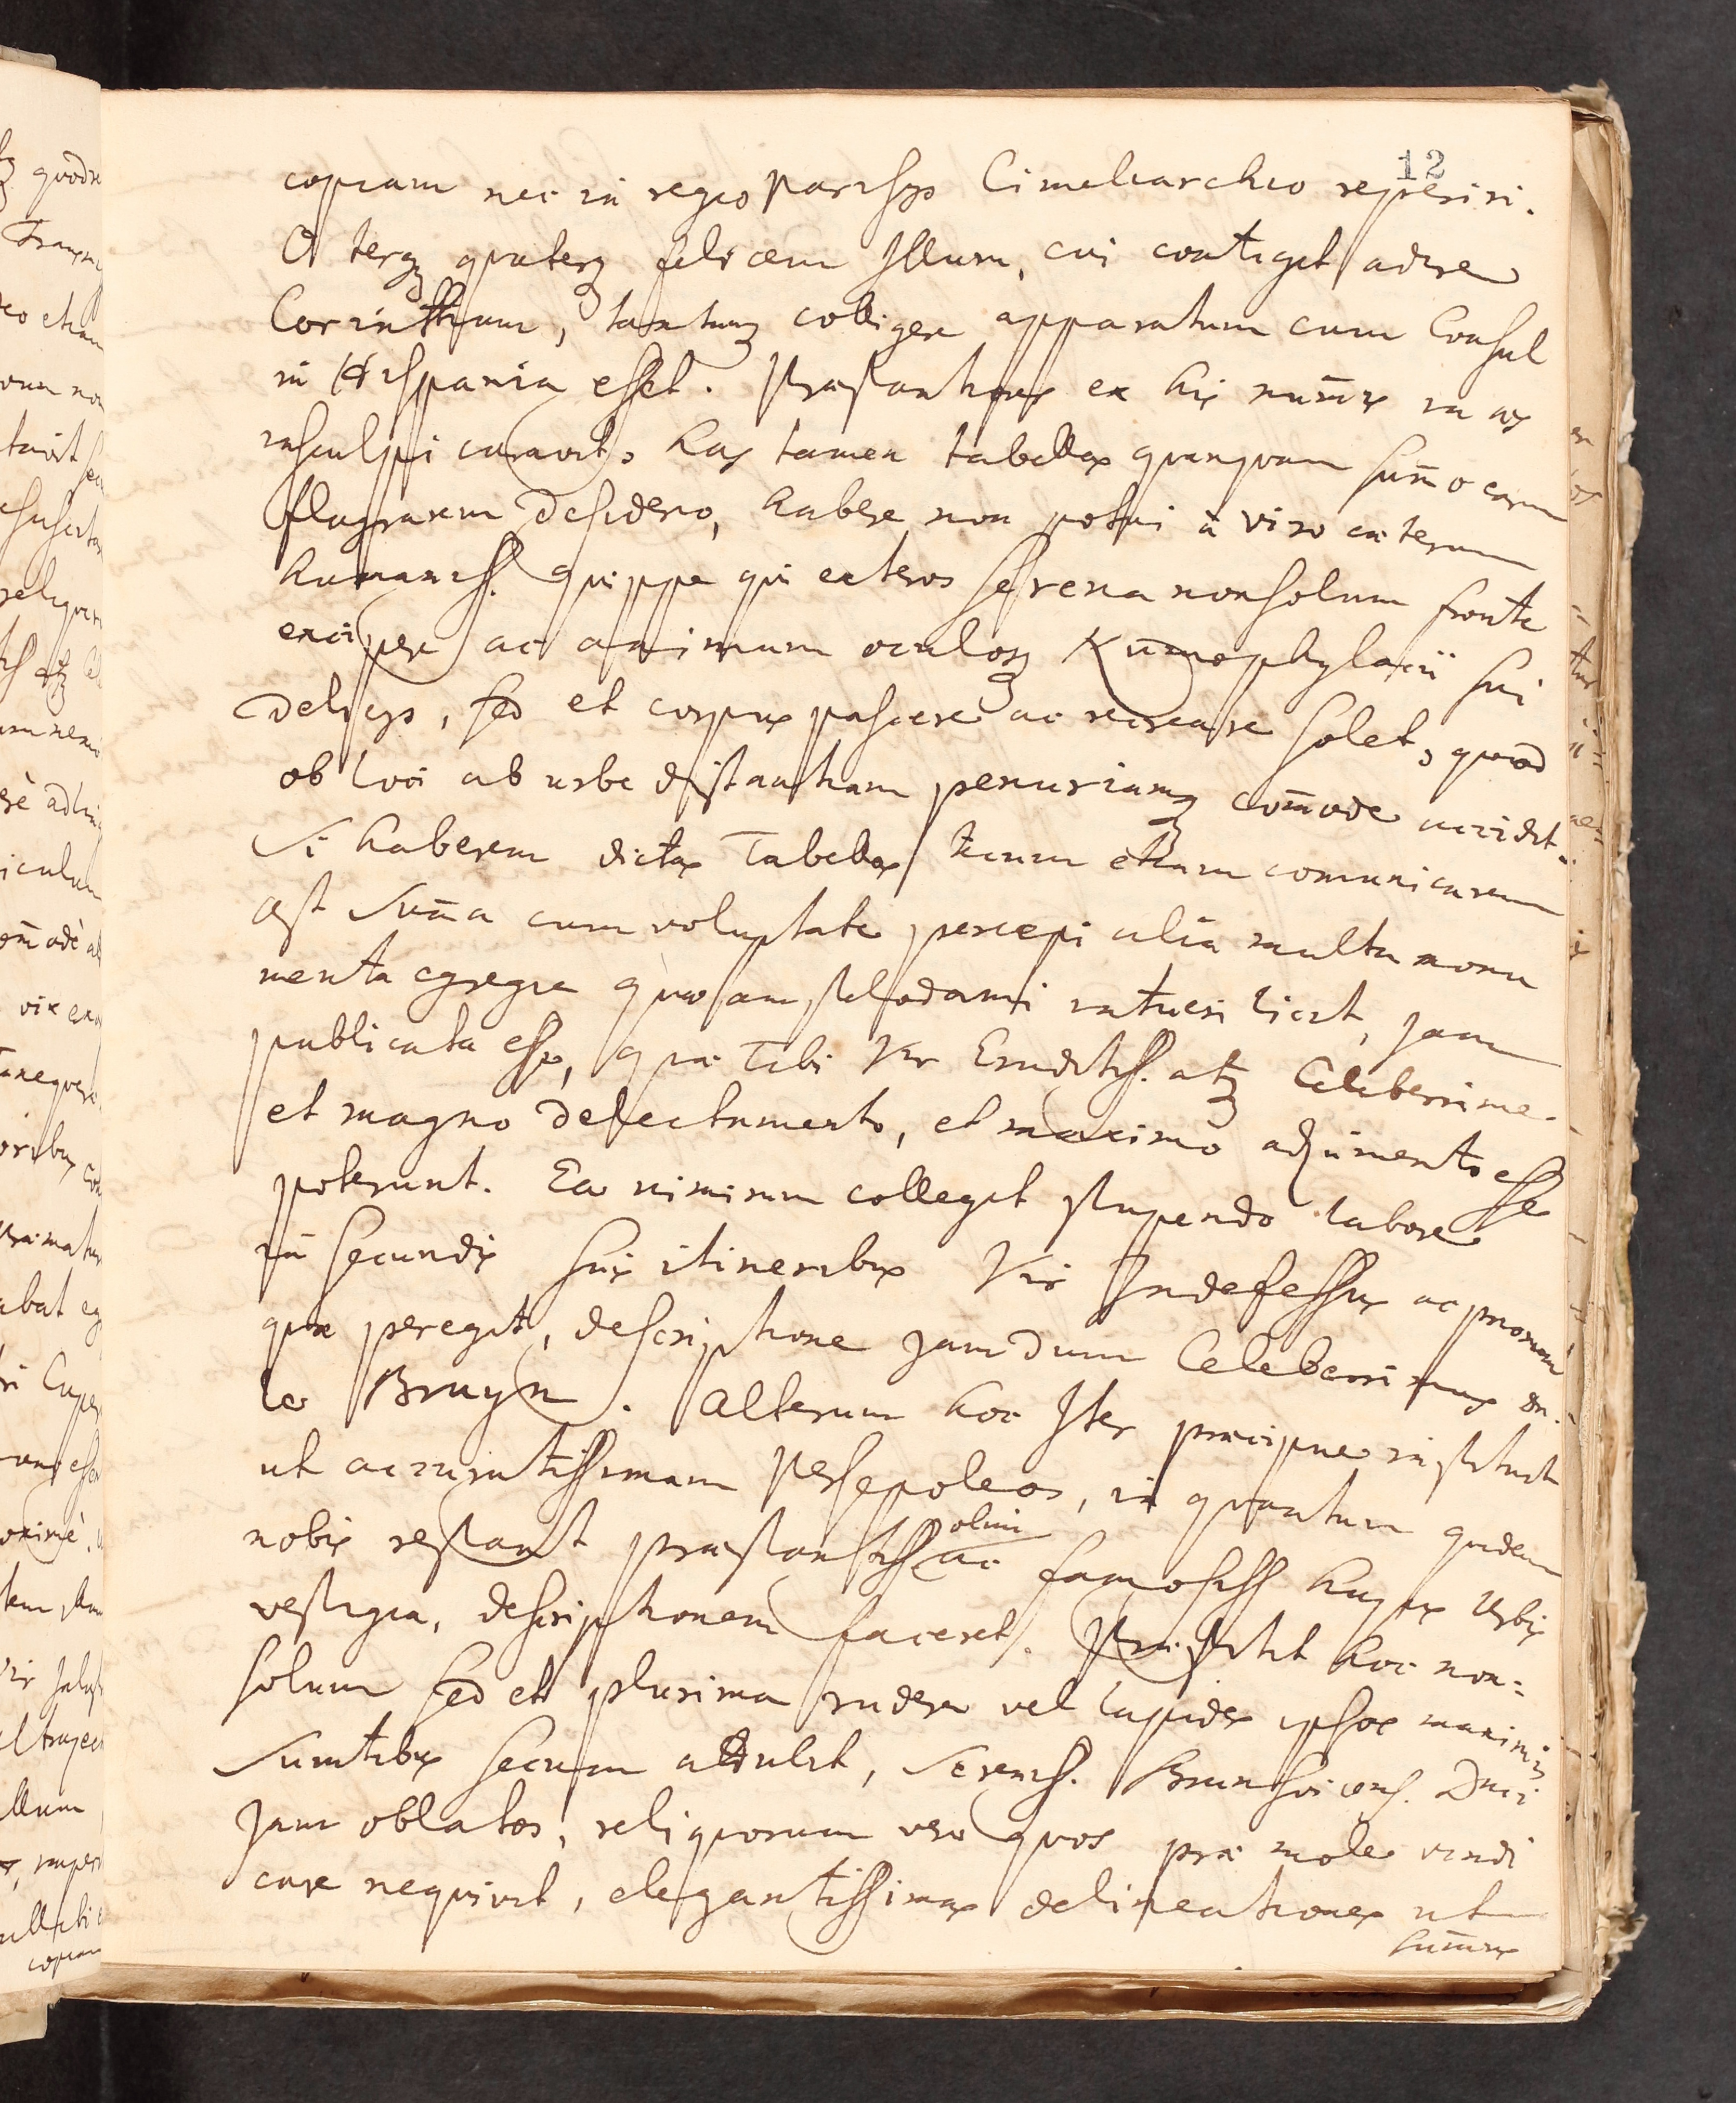 12
copiam nec in regio parisijs Cimeliarchio reperiri.
O terq quaterq felicem Illum, cui contigit adire
Corinthum, tantumq colligere apparatum cum Consul
in Hispania esset. Præstantiores ex his num̄is in æs
insculpi curavit, has tamen tabellas quanquam sum̄o earum
flagrarem desiderio, habere non potui à viro cæterum
humaniss. quippe qui exteros serena non solum fronte
excipere ac animum oculosq Kumophylacii sui
delicijs, sed et corpus pascere ac recreare solet, quod
ob loci ab urbe distantiam penuriamq com̄ode accidit.
Si haberem dictas Tabellas tecum etiam comunicarem
ast Sum̄a cum voluptate percepi alia multa monu
menta egregia quæ Amstelodami intueri licet, jam
publicata esse, quæ Tibi Vir Eruditiss. atq Celeberrime
et magno delectamento, et maximo adjumento esse
poterunt. Ea nimirum collegit stupendo labore
in secundis suis itineribus Vir Indefessus ac
quæ peregit, descriptione jamdum Celeberrimus Dn.
le Bruyn. Alterum hoc Iter præcipue instituit
ut accuratissimam Persepoleos, in quantum quidem
nobis restant præstantiss ac olim famosiss hujus Urbis
vestigia, descriptionem faceret. Præstitit hoc non:
solum sed et plurima rudera vel lapides ipsos maximis
Sumtibus secum attulit, Sereniss. Brunsvicens. Duci
jam oblatos, reliquorum vero quos præ mole vindi
care nequivit, elegantissimas delineationes ut
sum̄us